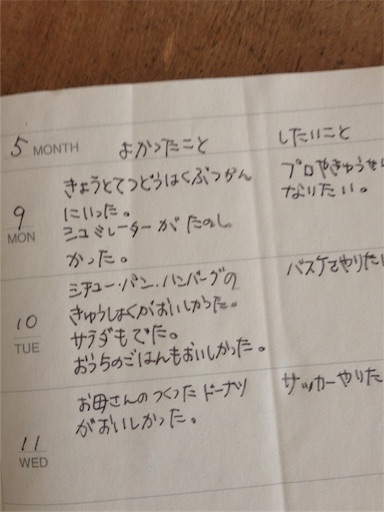 5 MONTH よかったこと したいこと
きょうとてつどうはくぶつかん
9 にいった。
MON シュミレーターがたのし
かった。
プロやきゅうせ
なりたい。
シチュー・パン・ハンバーグの
10 きゅうしょくがおいしかった。
TUE サラダもでた。
おうちのごはんもおいしかった。
バスケでやりたい
お母さんのつくったドーナツ
がおいしかった。
11
WED
サッカーやりた